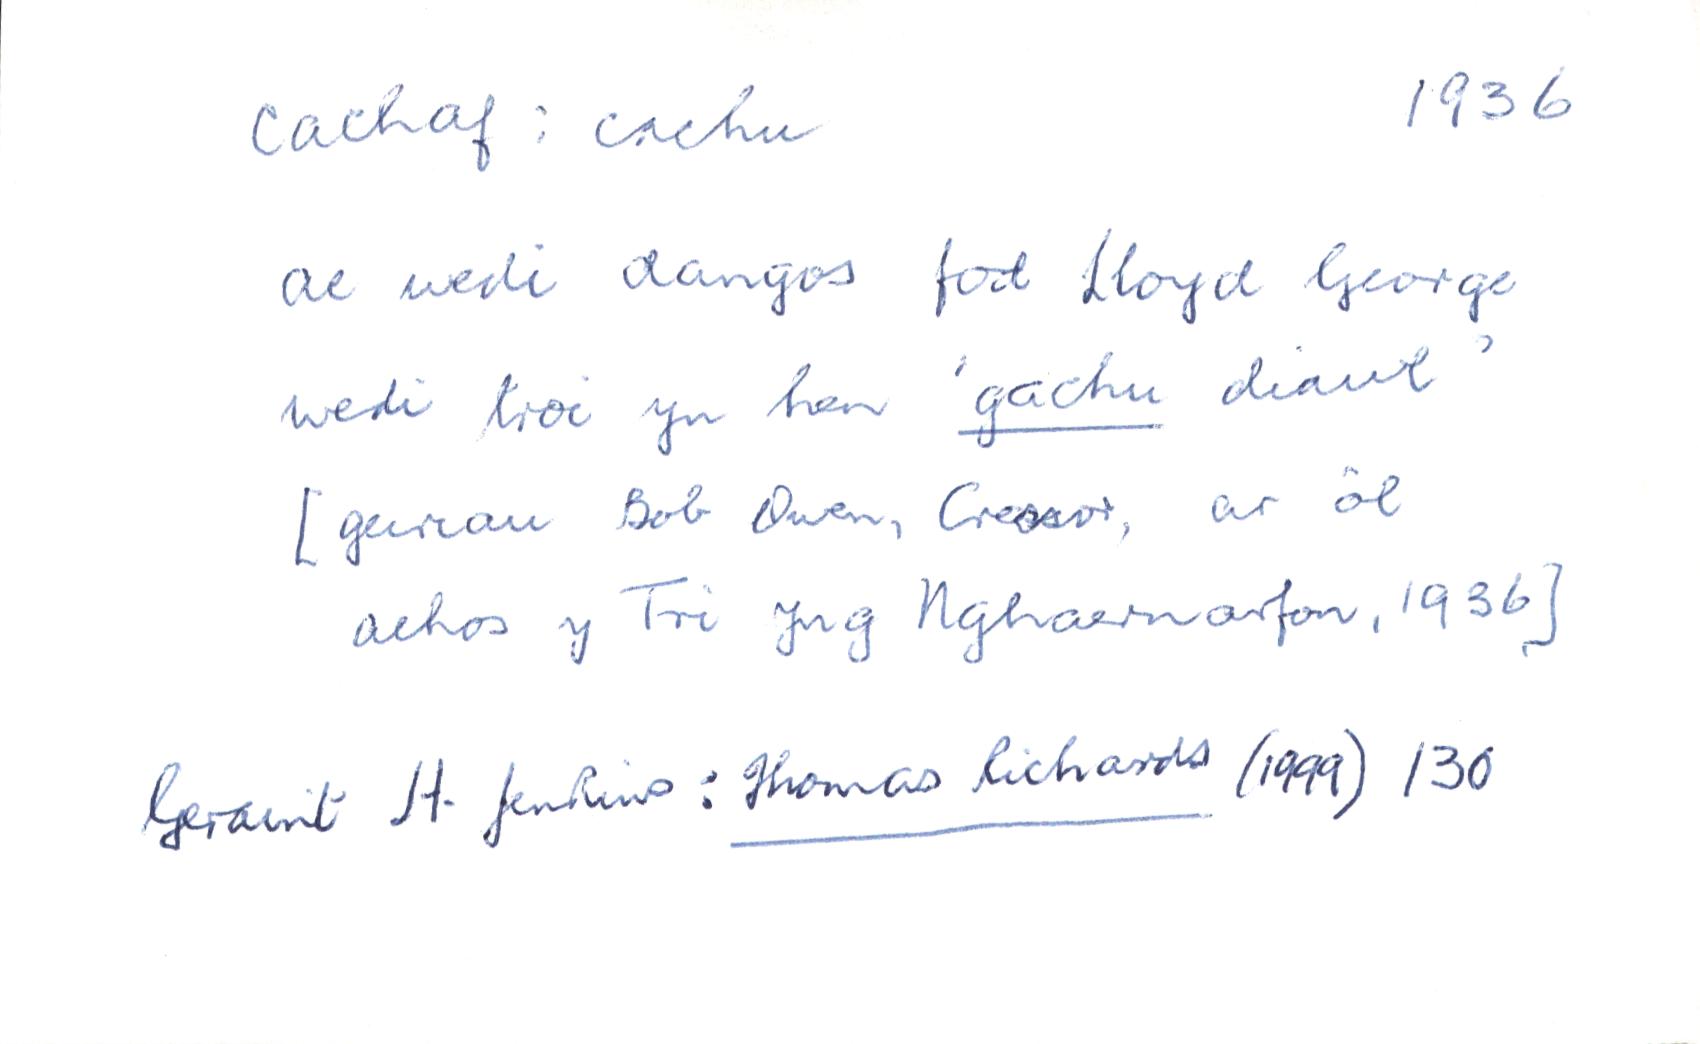 cachaf : cachu 1936
ac wedi dangos fod Lloyd George
wedi troi yn hen 'gachu diawl'
[geiriau Bob Owen, Croesor, ar ôl
achos y Tri yng Nghaernarfon, 1936]
Geraint H. Jenkins : Thomas Richards (1999) 130